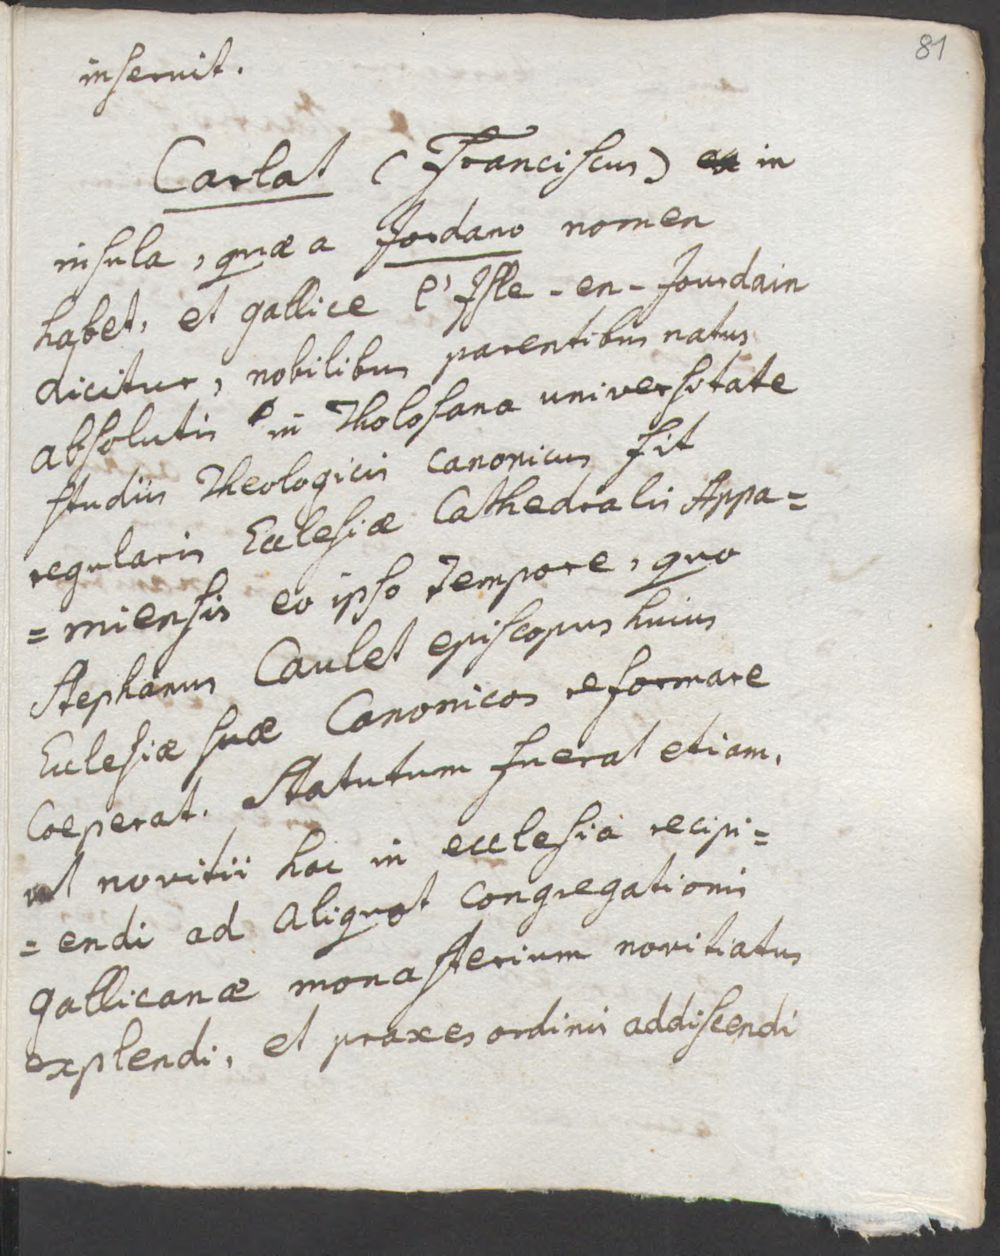 81
inservit.
Carlat (Franciscus) in
insula, quæ a Jordano nomen
habet, et gallice l'Isle-en-Jourdain
dicitur, nobilibus parentibus natus
absolutis in Tholosana universitate
studiis Theologicis canonicus fit
regularis Ecclesiæ Cathedralis Appa=
=miensis eo ipso tempore, quo
Stephanus Caulet episcopus huius
Ecclesiæ suæ Canonicos reformare
Coeperat. Statutum fuerat etiam,
ut novitii hac in ecclesia recipi=
=endi ad aliquot congregationis
gallicanæ monasterium novitiatus
explendi, et praxes ordinis addiscendi